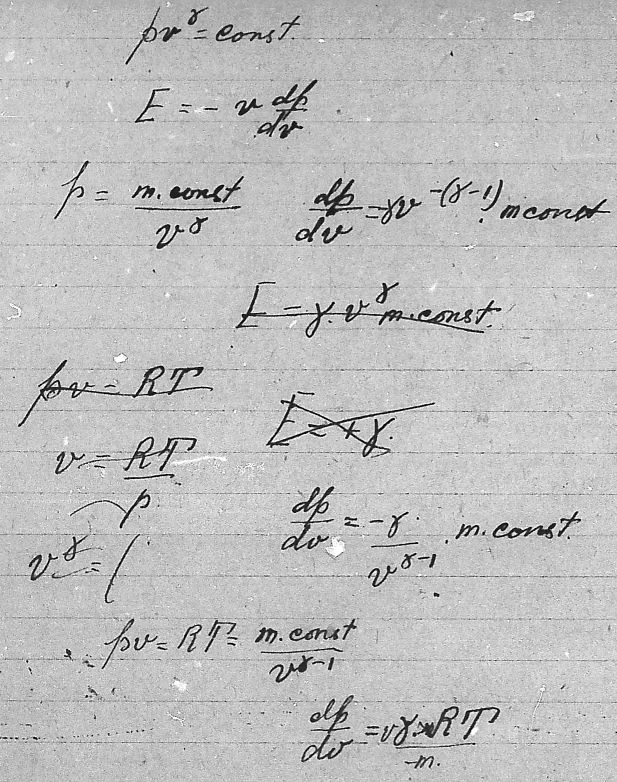 pv^γ = const.
E = - v dp/dv
p = m.const/v^γ    dp/dv = γv^-(γ-1) . m const
E = γ. v^γ m.const.
pv = RT
E = + γ.
v = RT/p
dp/dv = -γ/v^γ-1 . m.const.
v^γ = (
pv = RT = m.const/v^γ-1
dp/dv = RT/m.